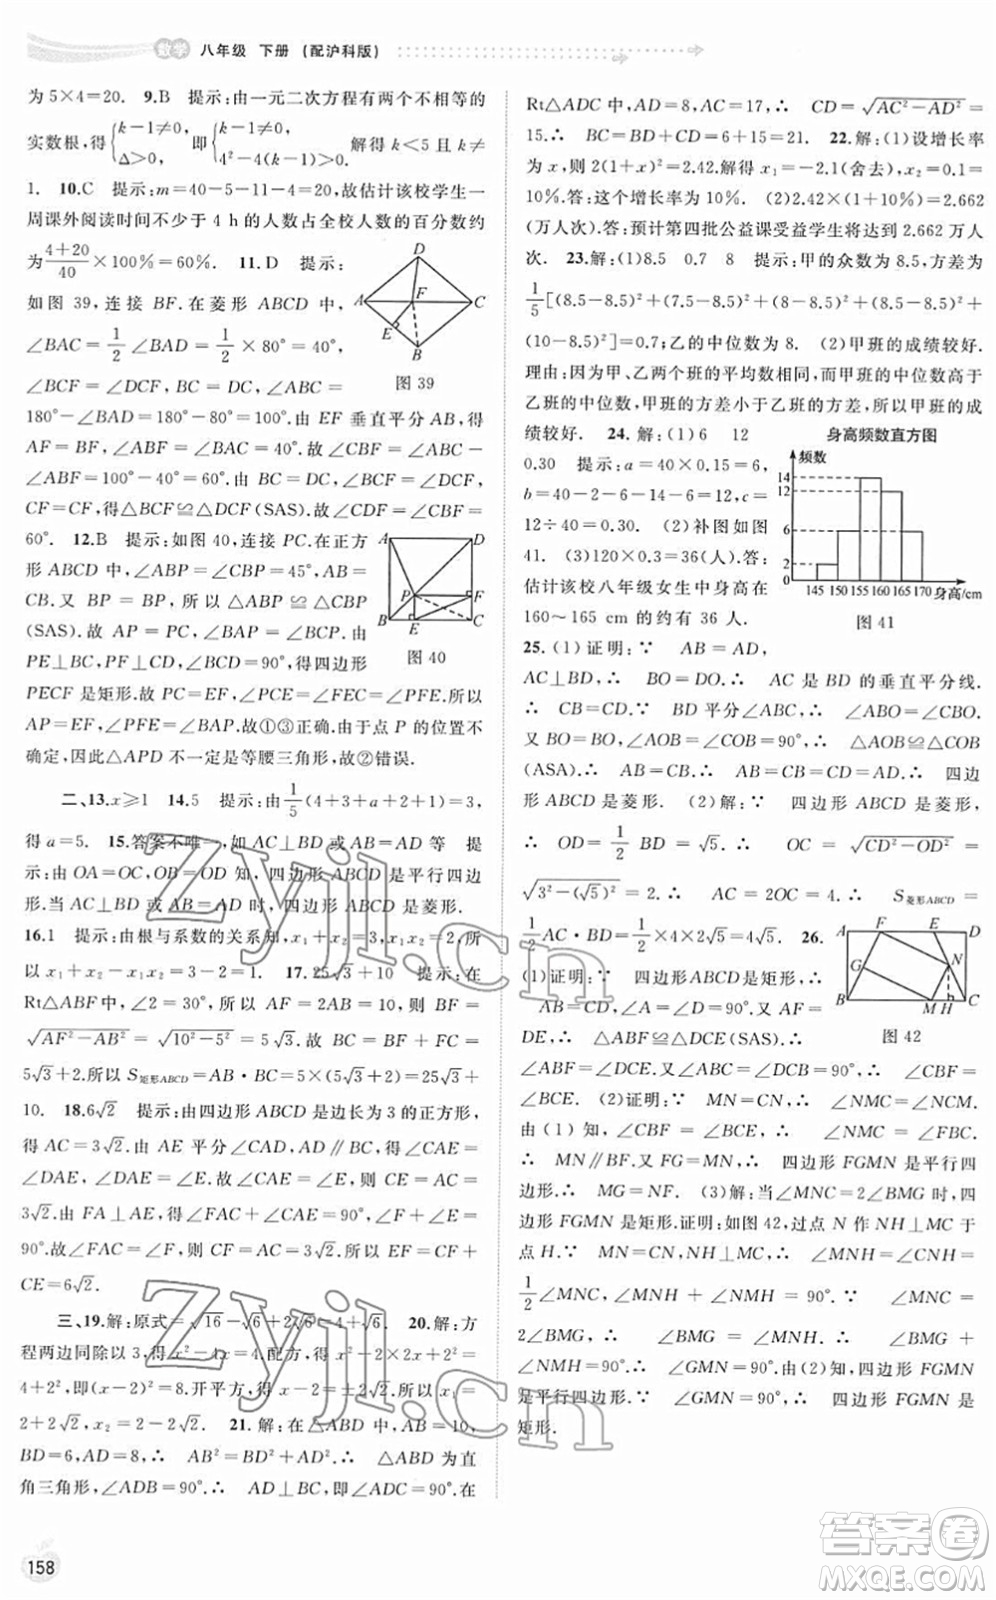 数学 八年级 下册 (配沪科版)
为 5×4=20. 9.B 提示:由一元二次方程有两个不相等的
实数根,得{k-1≠0, Δ>0, 即{k-1≠0, 4²-4(k-1)>0. 解得 k<5 且 k≠
1. 10.C 提示:m=40-5-11-4=20,故估计该校学生一
周课外阅读时间不少于 4 h 的人数占全校人数的百分数约
为 (4+20)/40 ×100%=60%. 11.D 提示:
如图 39,连接 BF.在菱形 ABCD 中,
∠BAC=1/2∠BAD=1/2×80°=40°,
∠BCF=∠DCF, BC=DC, ∠ABC=
180°-∠BAD=180°-80°=100°.由 EF 垂直平分 AB,得
AF=BF,∠ABF=∠BAC=40°.故∠CBF=∠ABC-
∠ABF=100°-40°=60°.由 BC=DC,∠BCF=∠DCF,
CF=CF,得△BCF≌△DCF(SAS).故∠CDF=∠CBF=
60°. 12.B 提示:如图 40,连接 PC.在正方
形 ABCD 中,∠ABP=∠CBP=45°,AB=
CB.又 BP=BP,所以△ABP≌△CBP
(SAS).故 AP=CP,∠BAP=∠BCP.由
PE⊥BC,PF⊥CD,∠BCD=90°,得四边形
PECF 是矩形.故 PC=EF,∠PCE=∠FEC=∠PFE.所以
AP=EF,∠PFE=∠BAP.故①③正确.由于点 P 的位置不
确定,因此△APD 不一定是等腰三角形,故②错误.
二、13.x≥1 14.5 提示:由1/5(4+3+a+2+1)=3,
得 a=5. 15.答案不唯一,如 AC⊥BD 或 AB=AD 等 提
示:由 OA=OC,OB=OD 知,四边形 ABCD 是平行四边
形.当 AC⊥BD 或 AB=AD 时,四边形 ABCD 是菱形.
16.1 提示:由根与系数的关系知,x₁+x₂=3,x₁x₂=2,所
以 x₁+x₂-x₁x₂=3-2=1. 17.25√3+10 提示:在
Rt△ABF 中,∠2=30°,所以 AF=2AB=10.则 BF=
√(AF²-AB²)=√(10²-5²)=5√3.故 BC=BF+FC=
5√3+2.所以 S矩形ABCD=AB·BC=5×(5√3+2)=25√3+
10. 18.6√2 提示:由四边形 ABCD 是边长为 3 的正方形,
得 AC=3√2.由 AE 平分∠CAD,AD∥BC,得∠CAE=
∠DAE,∠DAE=∠E.所以∠CAE=∠E.故 CE=CA=
3√2.由 FA⊥AE,得∠FAC+∠CAE=90°,∠F+∠E=
90°.故∠FAC=∠F.所以 CF=AC=3√2.故 EF=CF+
CE=6√2.
三、19.解:原式=√16-√6+2√6=4+√6. 20.解:方
程两边同除以 3,得 x²-4x=4.配方,得 x²-2×2x+2²=
4+2²,即(x-2)²=8.开平方,得 x-2=±2√2.所以 x₁=
2+2√2,x₂=2-2√2. 21.解:在△ABD 中,AB=10,
BD=6,AD=8,∴ AB²=BD²+AD².∴ △ABD 为直
角三角形,∠ADB=90°.∴ AD⊥BC,即∠ADC=90°.在
Rt△ADC 中,AD=8,AC=17,∴ CD=√(AC²-AD²)=
15.∴ BC=BD+CD=6+15=21. 22.解:(1)设增长率
为 x,则 2(1+x)²=2.42.解得 x₁=-2.1(舍去),x₂=0.1=
10%.答:增长率为 10%. (2)2.42×(1+10%)=2.662
(万人次).答:预计第四批公益课受益学生将达到 2.662 万人
次. 23.解:(1)8.5 0.7 8 提示:甲的众数为 8.5,方差为
1/5[(8.5-8.5)²+(7.5-8.5)²+(8-8.5)²+(8.5-8.5)²+
(10-8.5)²]=0.7;乙的中位数为 8. (2)甲班的成绩较好.
理由:因为甲、乙两个班的平均数相同,而甲班的中位数高于
乙班的中位数,甲班的方差小于乙班的方差,所以甲班的成
绩较好. 24.解:(1)6 12
0.30 提示:a=40×0.15=6,
b=40-2-6-14-6=12,c=
12÷40=0.30. (2)补图如图
41. (3)120×0.3=36(人).答:
估计该校八年级女生中身高在
160~165 cm 的约有 36 人.
25.(1)证明:∵ AB=AD,
AC⊥BD,∴ BO=DO.∴ AC 是 BD 的垂直平分线.
∴ CB=CD.∵ BD 平分∠ABC,∴ ∠ABO=∠CBO.
又 BO=BO,∠AOB=∠COB=90°,∴ △AOB≌△COB
(ASA).∴ AB=CB.∴ AB=CB=CD=AD.∴ 四边
形 ABCD 是菱形. (2)解:∵ 四边形 ABCD 是菱形,
∴ OD=1/2BD=√5.∴ OC=√(CD²-OD²)=
√(3²-(√5)²)=2.∴ AC=2OC=4.∴ S菱形ABCD=
1/2AC·BD=1/2×4×2√5=4√5. 26.
(1)证明:∵ 四边形ABCD是矩形,
∴ AB=CD,∠A=∠D=90°.又 AF=
DE,∴ △ABF≌△DCE(SAS).∴
∠ABF=∠DCE.又∠ABC=∠DCB=90°,∴ ∠CBF=
∠BCE. (2)证明:∵ MN=CN,∴ ∠NMC=∠NCM.
由(1)知,∠CBF=∠BCE,∴ ∠NMC=∠FBC.
∴ MN∥BF.又 FG=MN,∴ 四边形 FGMN 是平行四
边形.∴ MG=NF. (3)解:当∠MNC=2∠BMG 时,四边
形 FGMN 是矩形.证明:如图 42,过点 N 作 NH⊥MC 于
点 H.∵ MN=CN,NH⊥MC,∴ ∠MNH=∠CNH=
1/2∠MNC,∠MNH+∠NMH=90°.∵ ∠MNC=
2∠BMG,∴ ∠BMG=∠MNH.∴ ∠BMG+
∠NMH=90°.∴ ∠GMN=90°.由(2)知,四边形 FGMN
是平行四边形.又∠GMN=90°,∴ 四边形 FGMN 是
矩形.
A
B
C
D
E
F
图 39
A
D
P
F
B
E
C
图 40
身高频数直方图
频数
14
12
6
2
145 150 155 160 165 170 身高/cm
图 41
A F E D
G N
B M H C
图 42
zyjl.cn
zyjl.cn
158
答案卷
MXQE.COM